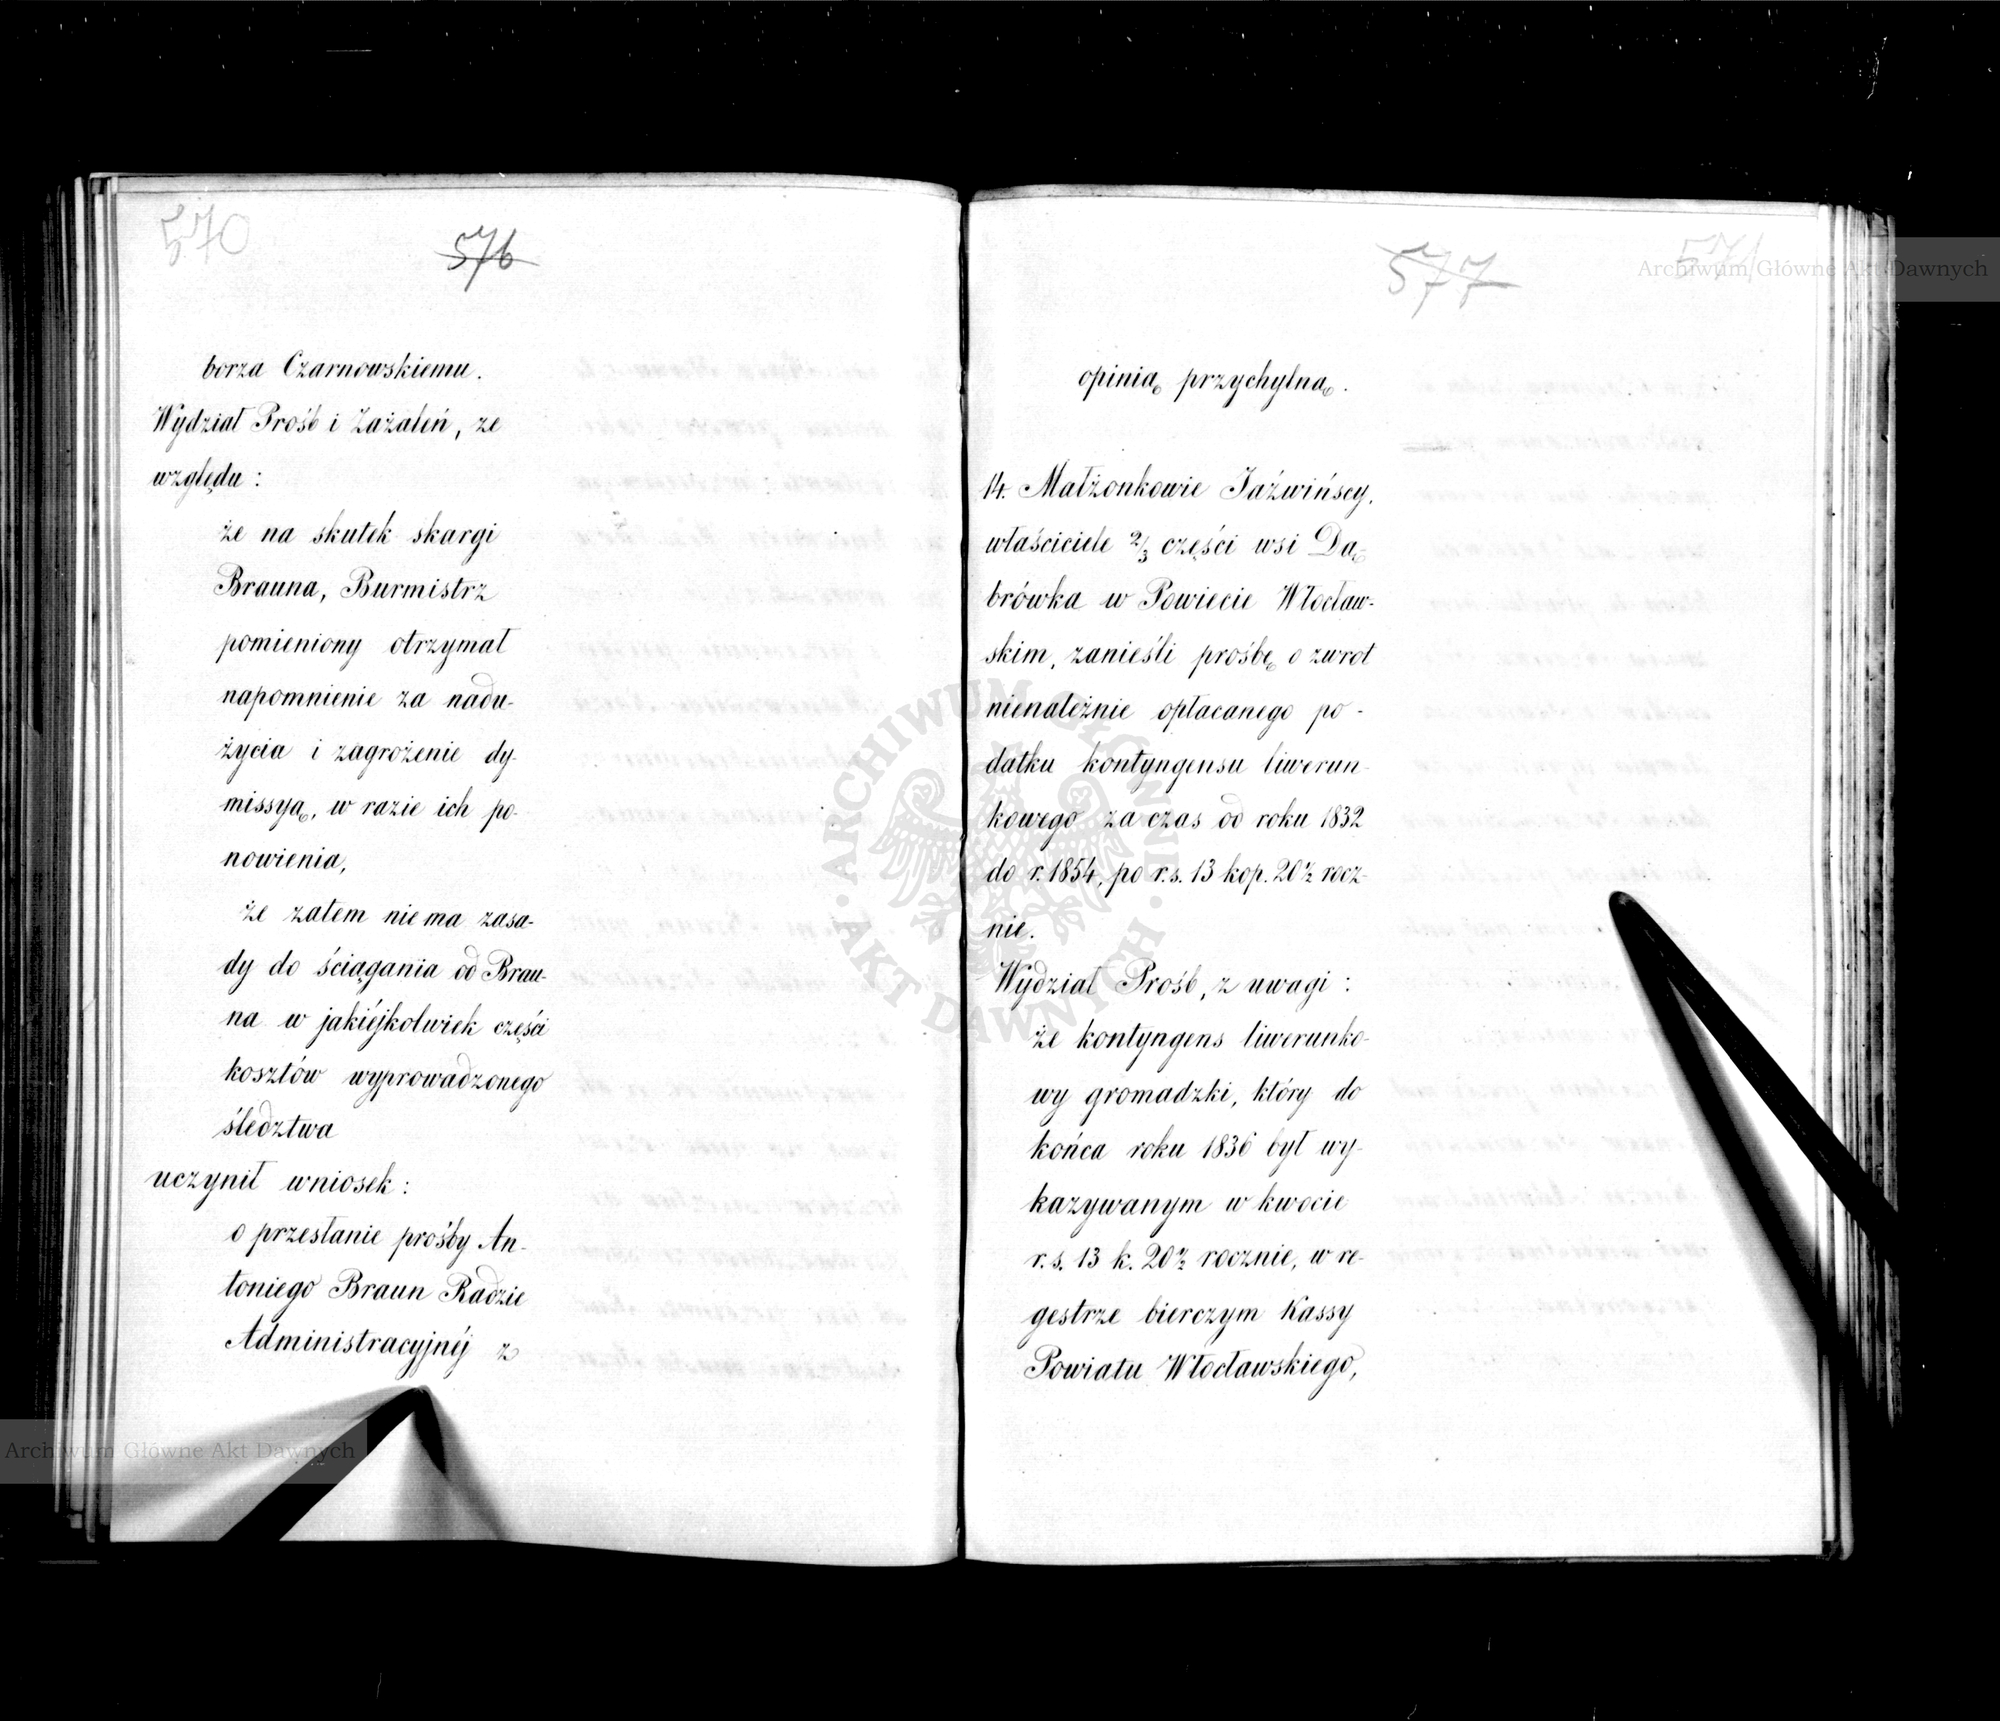 570
576
borza Czarnowskiemu.
Wydział Prośb i Zażaleń, ze
względu:
że na skutek skargi
Brauna, Burmistrz
pomieniony otrzymał
napomnienie za nadu-
życia i zagrożenie dy-
missyą, w razie ich po-
nowienia,
że zatem nie ma zasa-
dy do ściągania od Brau-
na w jakiéjkolwiek części
kosztów wyprowadzonego
śledztwa
uczynił wniosek:
o przesłanie prośby An-
toniego Braun Radzie
Administracyjnéj z
577
571
opinią przychylną.
14. Małżonkowie Jaźwińscy,
właściciele 2/3 części wsi Dą-
brówka w Powiecie Włocław-
skim, zanieśli prośbę o zwrot
nienależnie opłacanego po-
datku kontyngensu liwerun-
kowego za czas od roku 1832
do r. 1854, po r.s. 13 kop. 20½ rocz-
nie.
Wydział Prośb, z uwagi:
że kontyngens liwerunko-
wy gromadzki, który do
końca roku 1836 był wy-
kazywanym w kwocie
r.s. 13 k. 20½ rocznie, w re-
gestrze bierczym Kassy
Powiatu Włocławskiego,
Archiwum Główne Akt Dawnych
Archiwum Główne Akt Dawnych
ARCHIWUM GŁÓWNE · AKT DAWNYCH ·